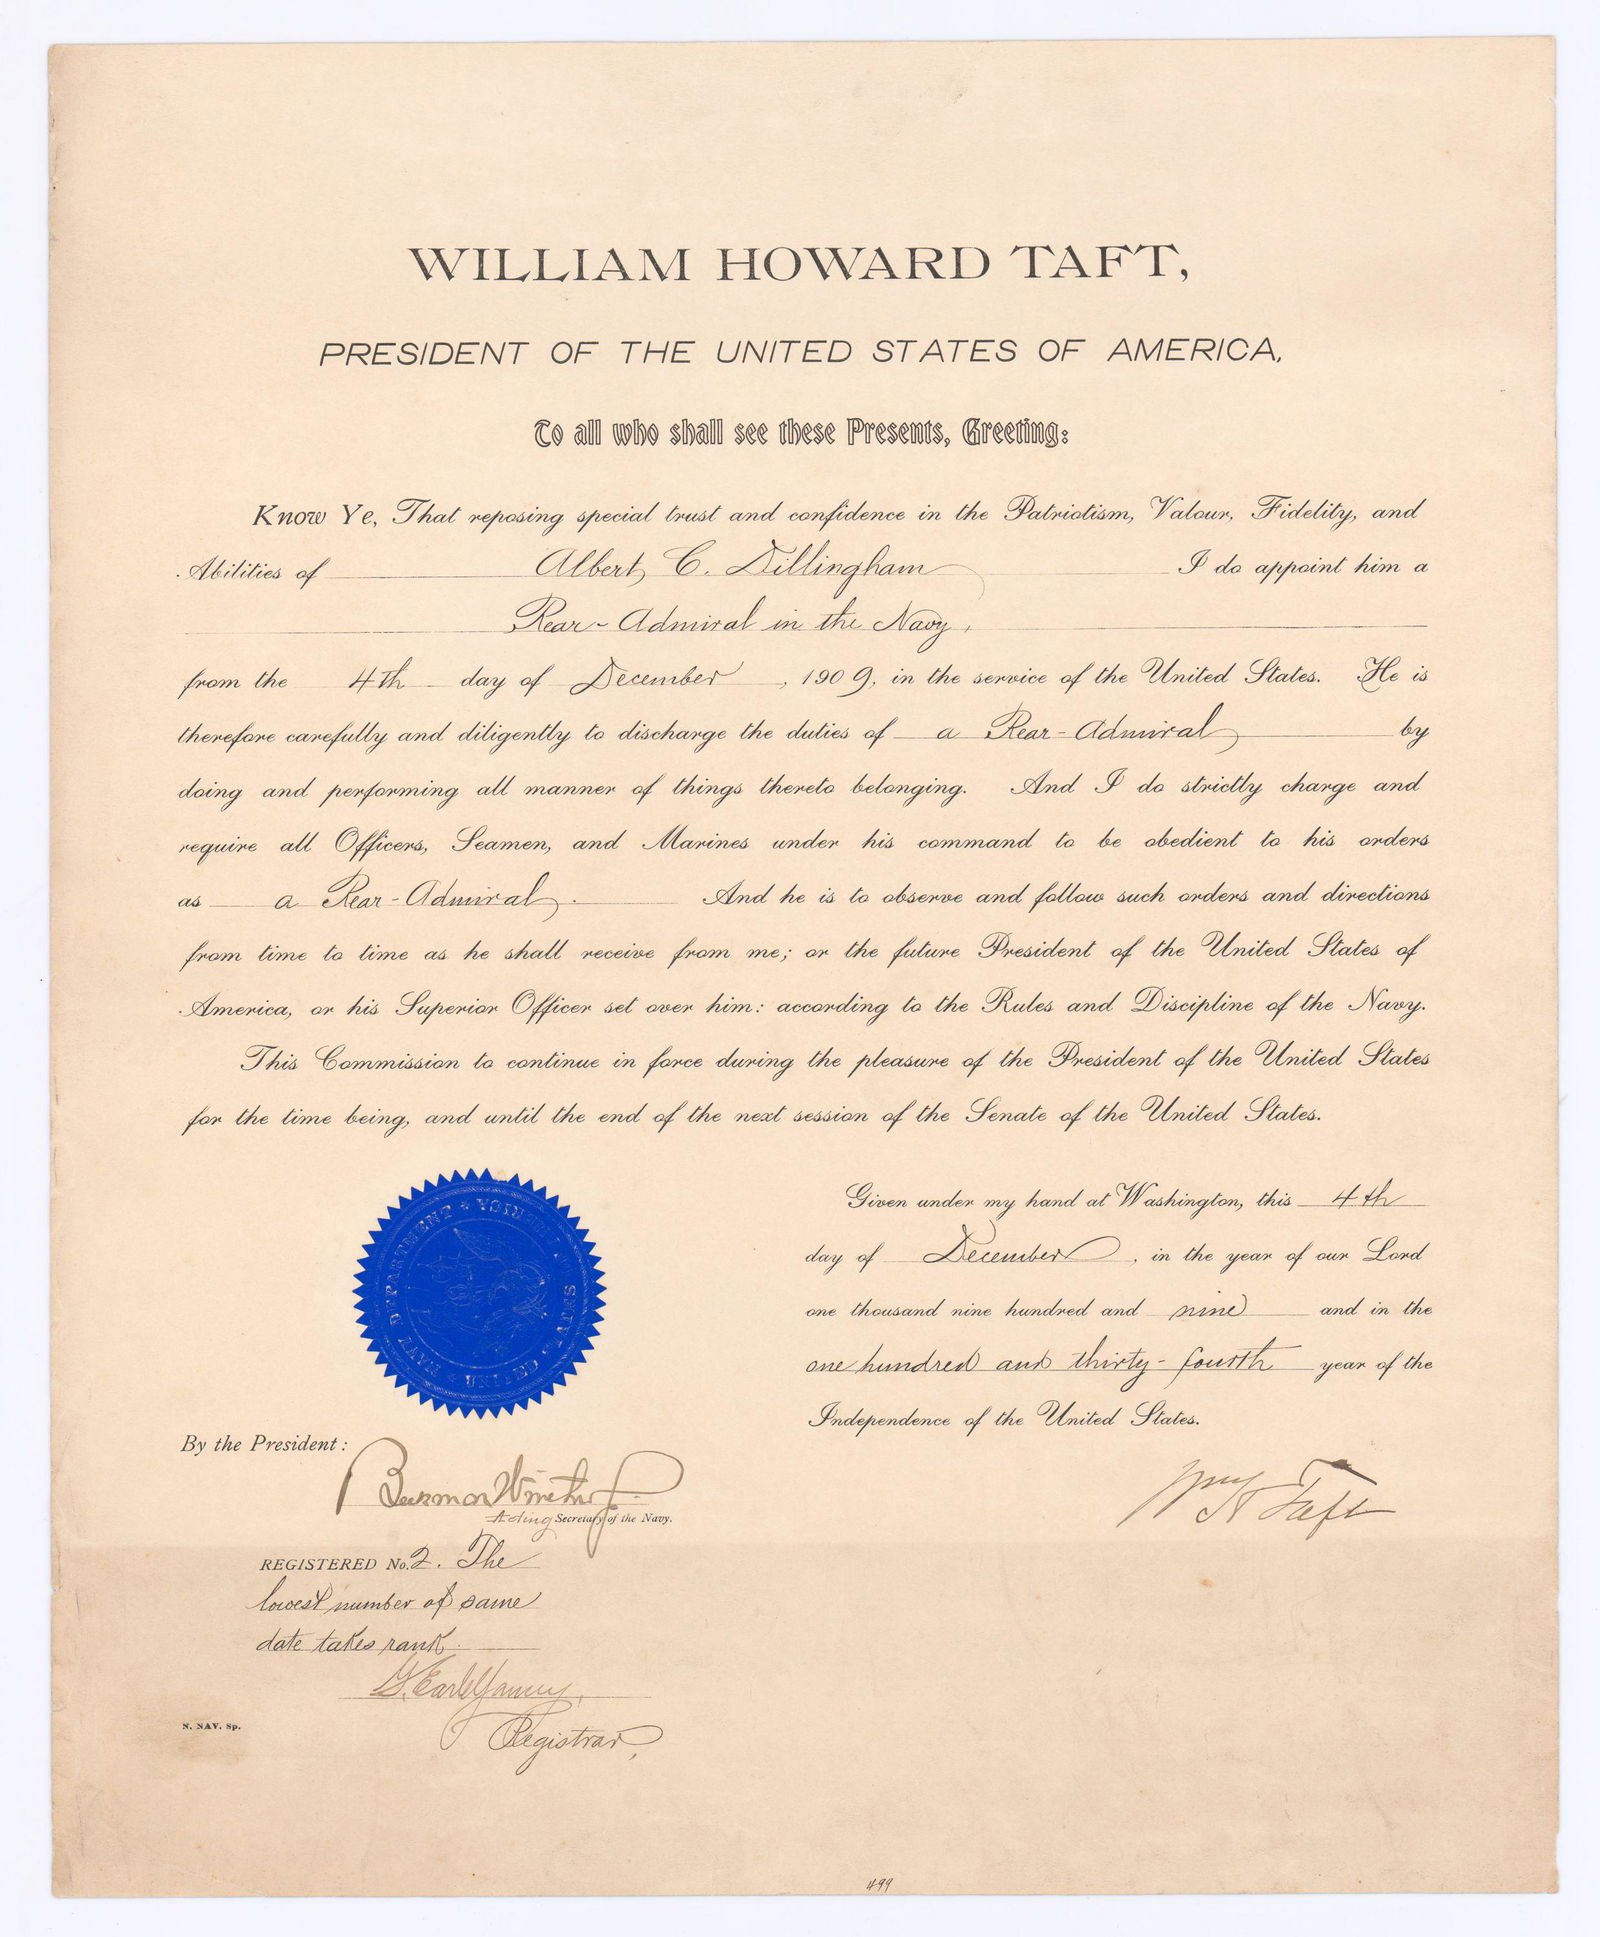 WILLIAM HOWARD TAFT,
PRESIDENT OF THE UNITED STATES OF AMERICA,
To all who shall see these Presents, Greeting:
Know Ye, That reposing special trust and confidence in the Patriotism, Valour, Fidelity, and
Abilities of Albert C. Dillingham I do appoint him a
Rear-Admiral in the Navy,
from the 4th day of December, 1909, in the service of the United States. He is
therefore carefully and diligently to discharge the duties of a Rear-Admiral by
doing and performing all manner of things thereto belonging. And I do strictly charge and
require all Officers, Seamen, and Marines under his command to be obedient to his orders
as a Rear-Admiral. And he is to observe and follow such orders and directions
from time to time as he shall receive from me; or the future President of the United States of
America, or his Superior Officer set over him: according to the Rules and Discipline of the Navy.
This Commission to continue in force during the pleasure of the President of the United States
for the time being, and until the end of the next session of the Senate of the United States.
Given under my hand at Washington, this 4th
day of December, in the year of our Lord
one thousand nine hundred and nine and in the
one hundred and thirty-fourth year of the
Independence of the United States.
Wm H Taft
NAVY DEPARTMENT ★ UNITED STATES
By the President:
Beekman Winthrop
Acting Secretary of the Navy.
REGISTERED No. 2. The
lowest number of same
date takes rank.
G. Earl
Registrar,
N. NAV. Sp.
499